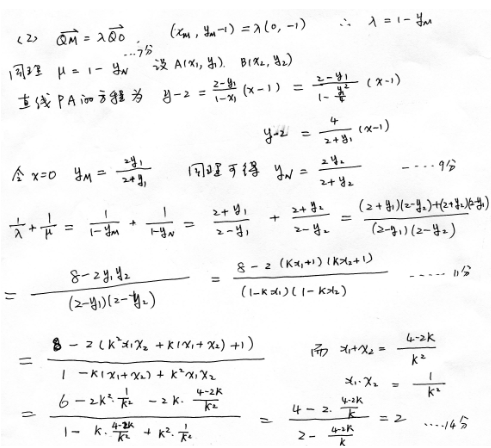 (2) $\overrightarrow{QM} = \lambda \overrightarrow{QO}$. $(x_M, y_M-1) = \lambda(0, -1)$ ∴ $\lambda = 1 - y_M$
…7分
同理 $\mu = 1 - y_N$ 设 $A(x_1, y_1)$. $B(x_2, y_2)$
直线PA的方程为 $y-2 = \frac{2-y_1}{1-x_1}(x-1) = \frac{2-y_1}{1-\frac{y_1^2}{4}}(x-1)$
$y-2 = \frac{4}{2+y_1}(x-1)$
令 $x=0$ $y_M = \frac{2y_1}{2+y_1}$ 同理可得 $y_N = \frac{2y_2}{2+y_2}$ ----9分
$\frac{1}{\lambda} + \frac{1}{\mu} = \frac{1}{1-y_M} + \frac{1}{1-y_N} = \frac{2+y_1}{2-y_1} + \frac{2+y_2}{2-y_2} = \frac{(2+y_1)(2-y_2)+(2+y_2)(2-y_1)}{(2-y_1)(2-y_2)}$
$= \frac{8-2y_1y_2}{(2-y_1)(2-y_2)} = \frac{8-2(kx_1+1)(kx_2+1)}{(1-kx_1)(1-kx_2)}$ ----- 11分
$= \frac{8-2(k^2x_1x_2+k(x_1+x_2)+1)}{1-k(x_1+x_2)+k^2x_1x_2}$ 而 $x_1+x_2 = \frac{4-2k}{k^2}$
$x_1 \cdot x_2 = \frac{1}{k^2}$
$= \frac{6-2k^2 \cdot \frac{1}{k^2} - 2k \cdot \frac{4-2k}{k^2}}{1-k \cdot \frac{4-2k}{k^2} + k^2 \cdot \frac{1}{k^2}} = \frac{4-2 \cdot \frac{4-2k}{k}}{2-\frac{4-2k}{k}} = 2$ ….14分